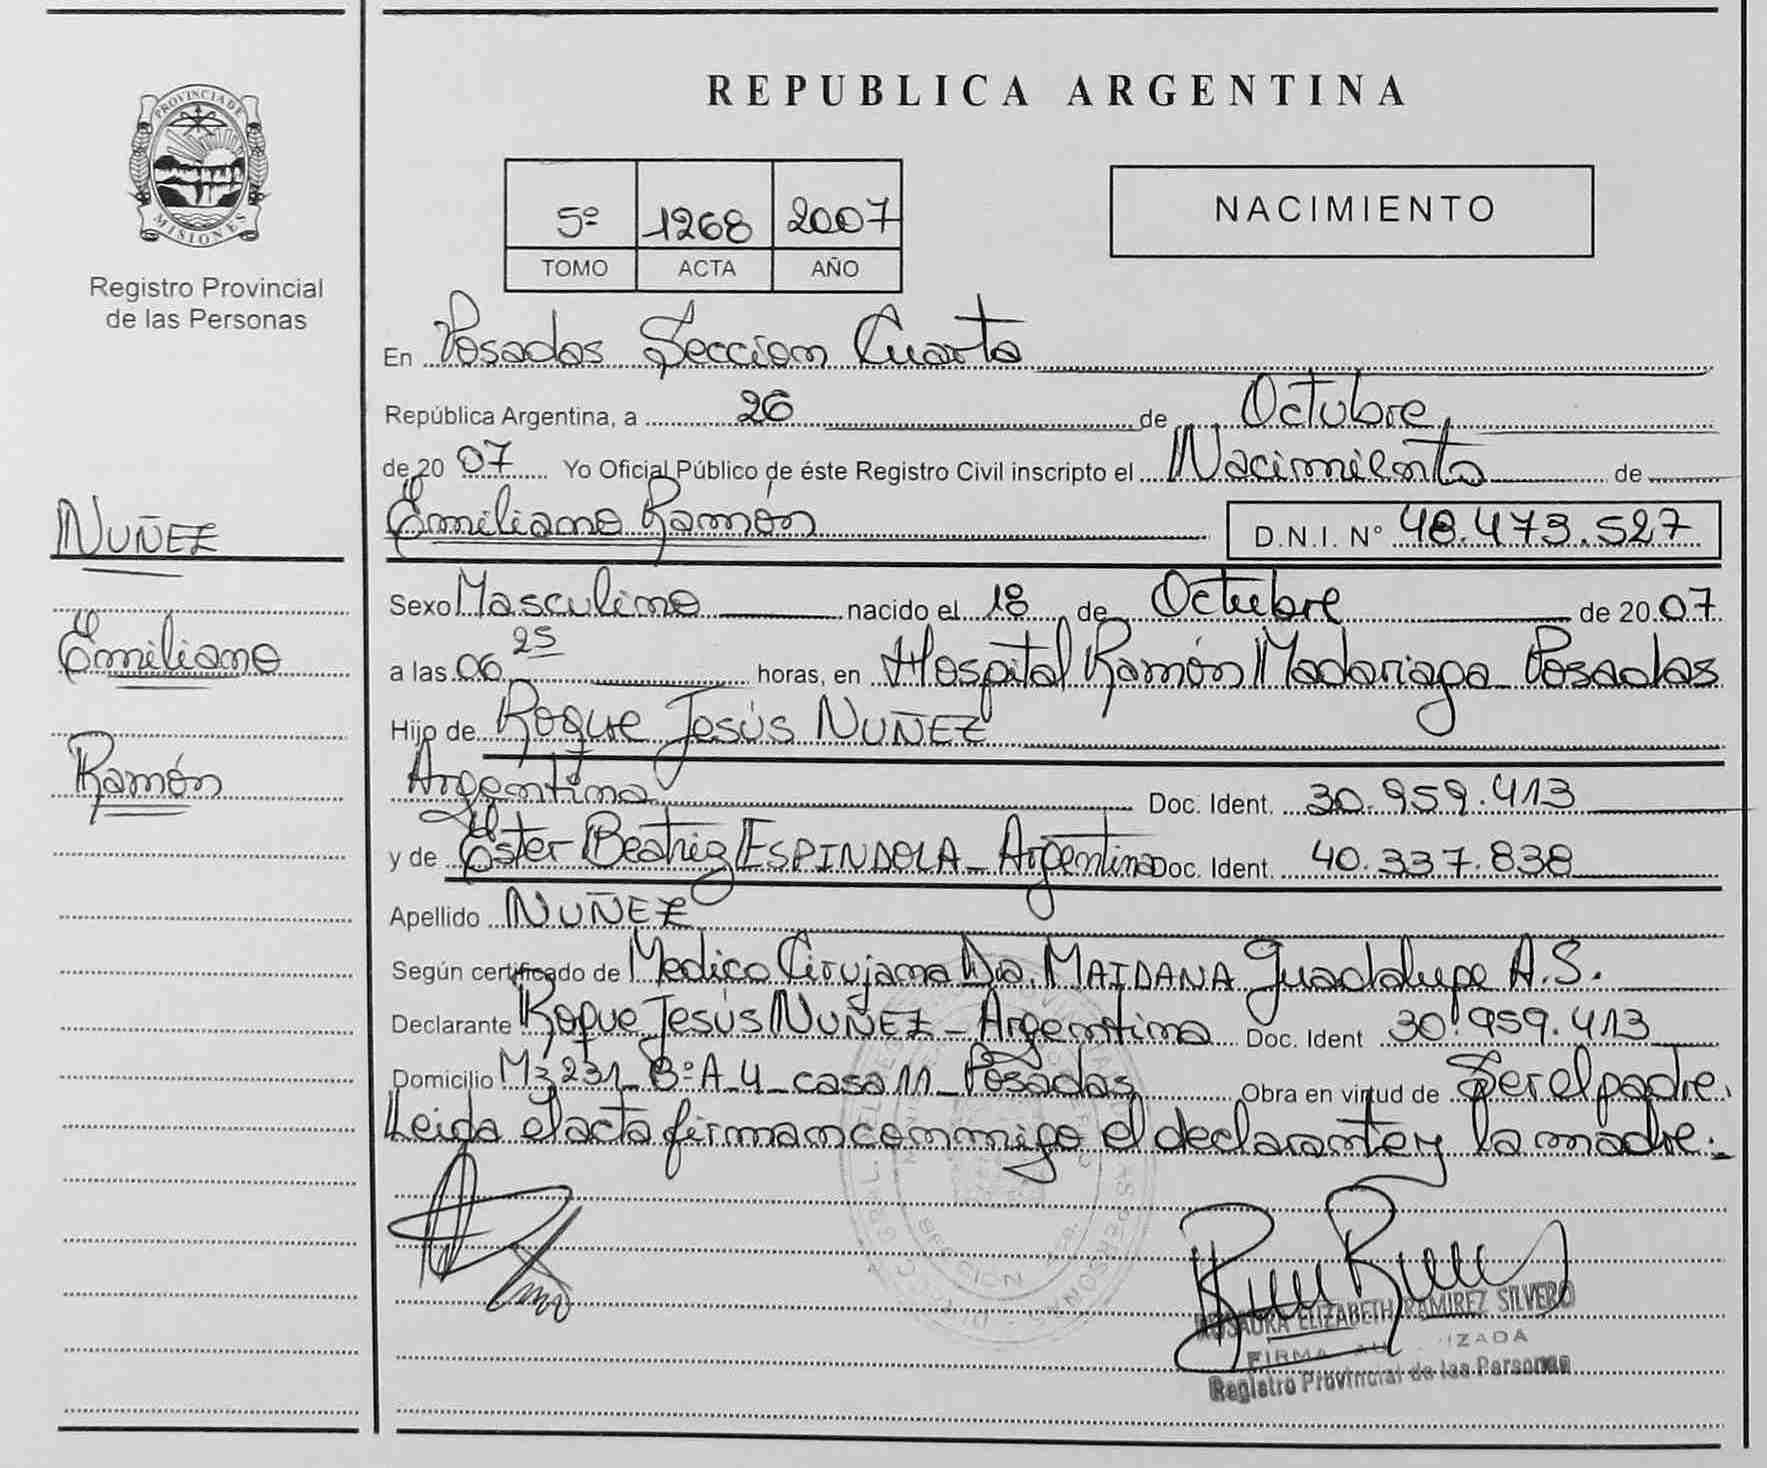 PROVINCIA DE
MISIONES
Registro Provincial
de las Personas
NUÑEZ
Emiliano
Ramón
REPUBLICA ARGENTINA
5º 1268 2007
TOMO ACTA AÑO
NACIMIENTO
En Posadas Seccion Cuarta
República Argentina, a 26 de Octubre
de 20 07 Yo Oficial Público de éste Registro Civil inscripto el Nacimiento de
Emiliano Ramón D.N.I. Nº 48.473.527
Sexo Masculino nacido el 18 de Octubre de 20 07
a las 06 25 horas, en Hospital Ramón Madariaga - Posadas
Hijo de Roque Jesús NUÑEZ
Argentino Doc. Ident. 30.959.413
y de Ester Beatriz ESPINDOLA - Argentina Doc. Ident. 40.337.838
Apellido NUÑEZ
Según certificado de Medico Cirujana Dra. MAIDANA Guadalupe A.S.
Declarante Roque Jesús NUÑEZ - Argentino Doc. Ident 30.959.413
Domicilio Mz 231 - Bº A-4 - casa 11 - Posadas Obra en virtud de Ser el padre.
Leida el acta firman conmigo el declarante y la madre.-
ROSAURA ELIZABETH RAMIREZ SILVERO
FIRMA AUTORIZADA
Registro Provincial de las Personas